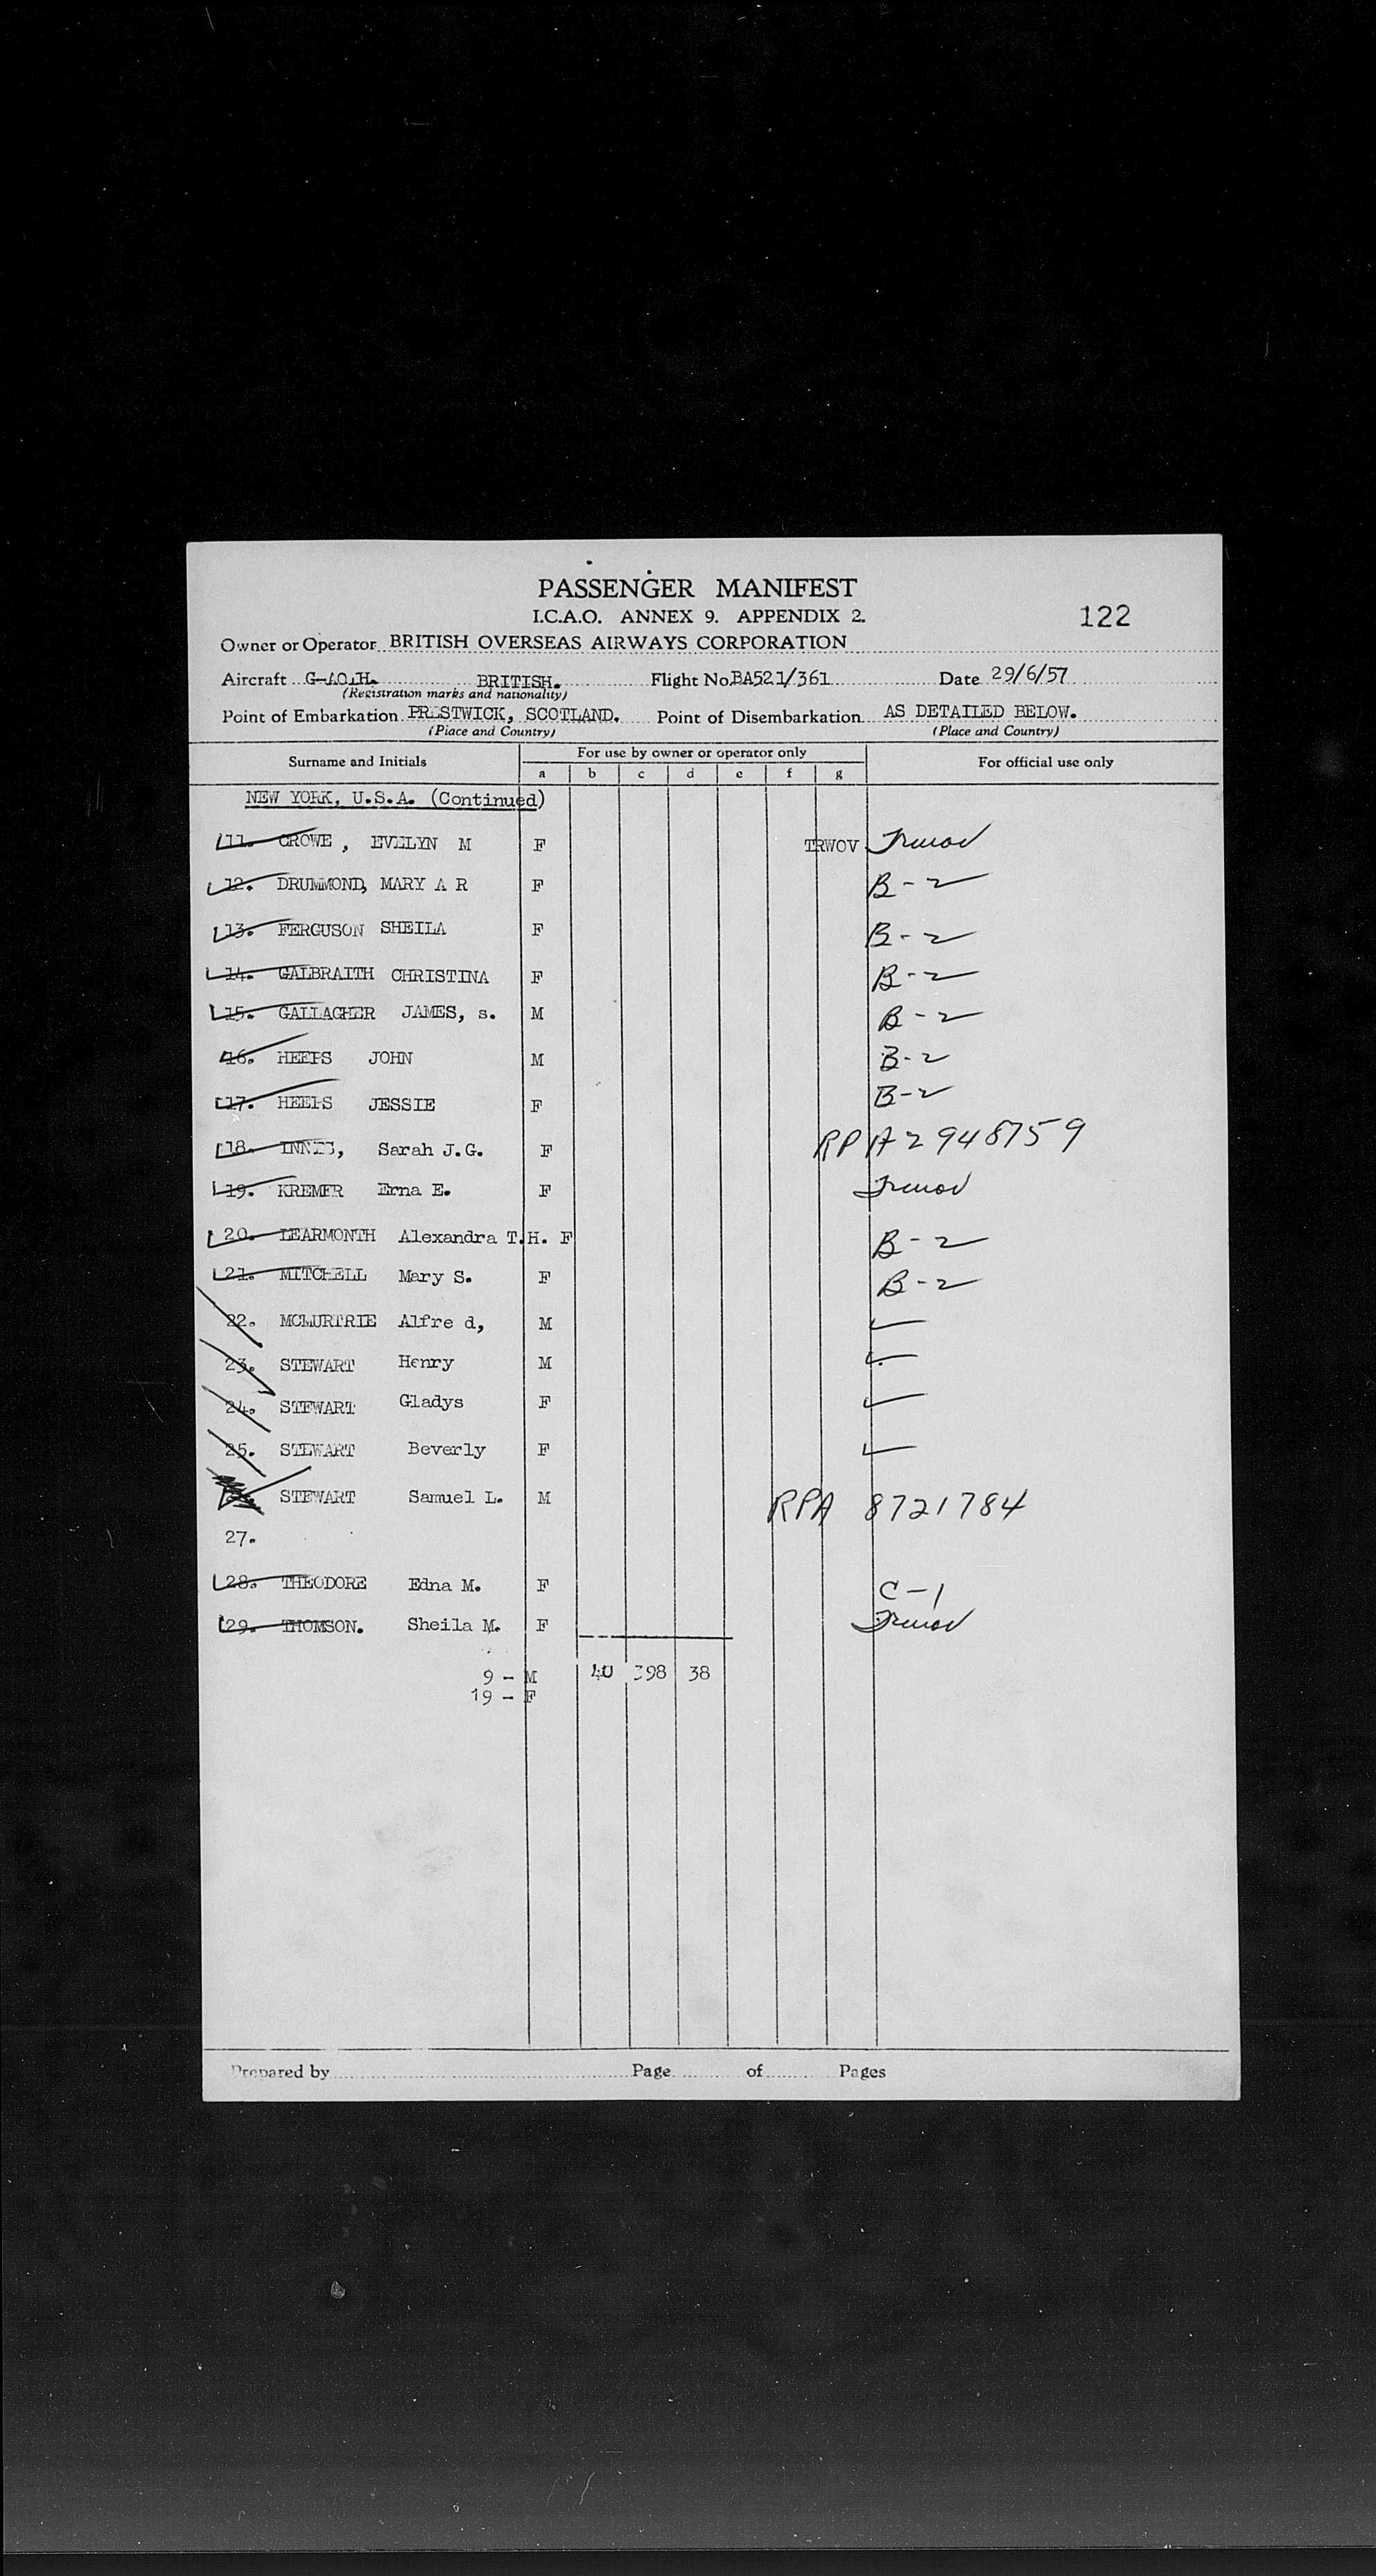 PASSENGER MANIFEST
I.C.A.O. ANNEX 9. APPENDIX 2.
122
Owner or Operator BRITISH OVERSEAS AIRWAYS CORPORATION
Aircraft BRITISH. Flight No. BA521/361 Date 29/6/57
(Registration marks and nationality)
Point of Embarkation PRESTWICK, SCOTLAND. Point of Disembarkation AS DETAILED BELOW.
(Place and Country) (Place and Country)
Surname and Initials For use by owner or operator only For official use only
a b c d e f g
NEW YORK, U.S.A. (Continued)
11. CROWE, EVELYN M F TRWOV Trwov
12. DRUMMOND, MARY A R F B-2
13. FERGUSON SHEILA F B-2
14. GALBRAITH CHRISTINA F B-2
15. GALLAGHER JAMES, s. M B-2
16. HEEPS JOHN M B-2
17. HEEPS JESSIE F B-2
18. INNES, Sarah J.G. F RPA 2948759
19. KREMER Erna E. F Trwov
20. LEARMONTH Alexandra T.H. F B-2
21. MITCHELL Mary S. F B-2
22. MCMURTRIE Alfre d, M ✓
23. STEWART Henry M ✓
24. STEWART Gladys F ✓
25. STEWART Beverly F ✓
STEWART Samuel L. M RPA 8721784
27.
28. THEODORE Edna M. F C-1
29. THOMSON. Sheila M. F Trwov
9 - M 40 398 38
19 - F
Prepared by Page of Pages